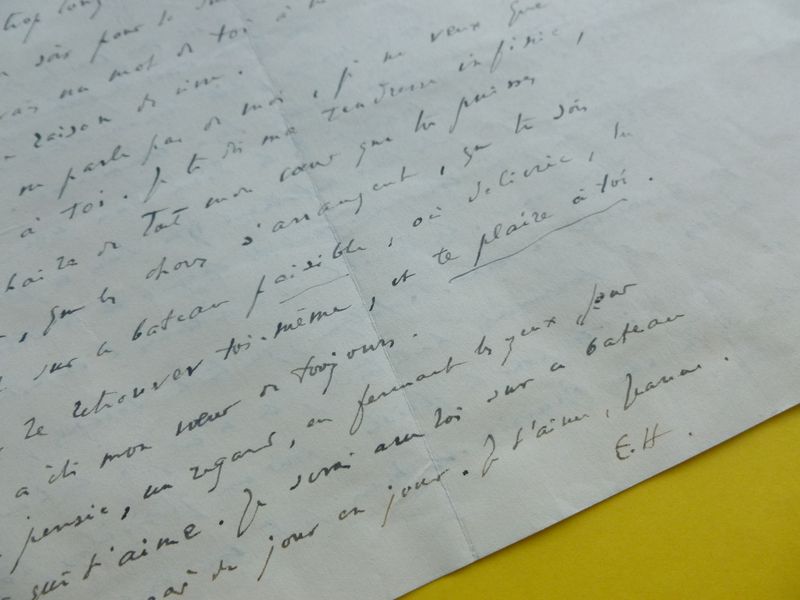 trop long
soir pour le
un mot de toi à
raison de vivre.
ne parle pas de moi, je ne veux que
à toi. Je te dis ma tendresse infinie,
de tout mon cœur que tu puisses
, que les choses s'arrangent, que tu sois
sur ce bateau paisible, où délivrée, tu
te retrouver toi-même, et te plaire à toi.
a été mon cœur de toujours.
pensée, un regard, en fermant les yeux pour
qui t'aime. Je serai avec toi sur ce bateau
de jour en jour. Je t'aime,
E.H.